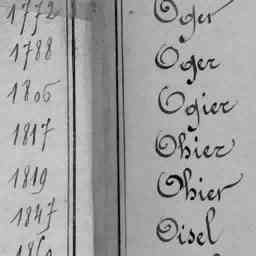 1772 Oger
1788 Oger
1806 Ogier
1817 Ohier
1819 Ohier
1847 Oisel